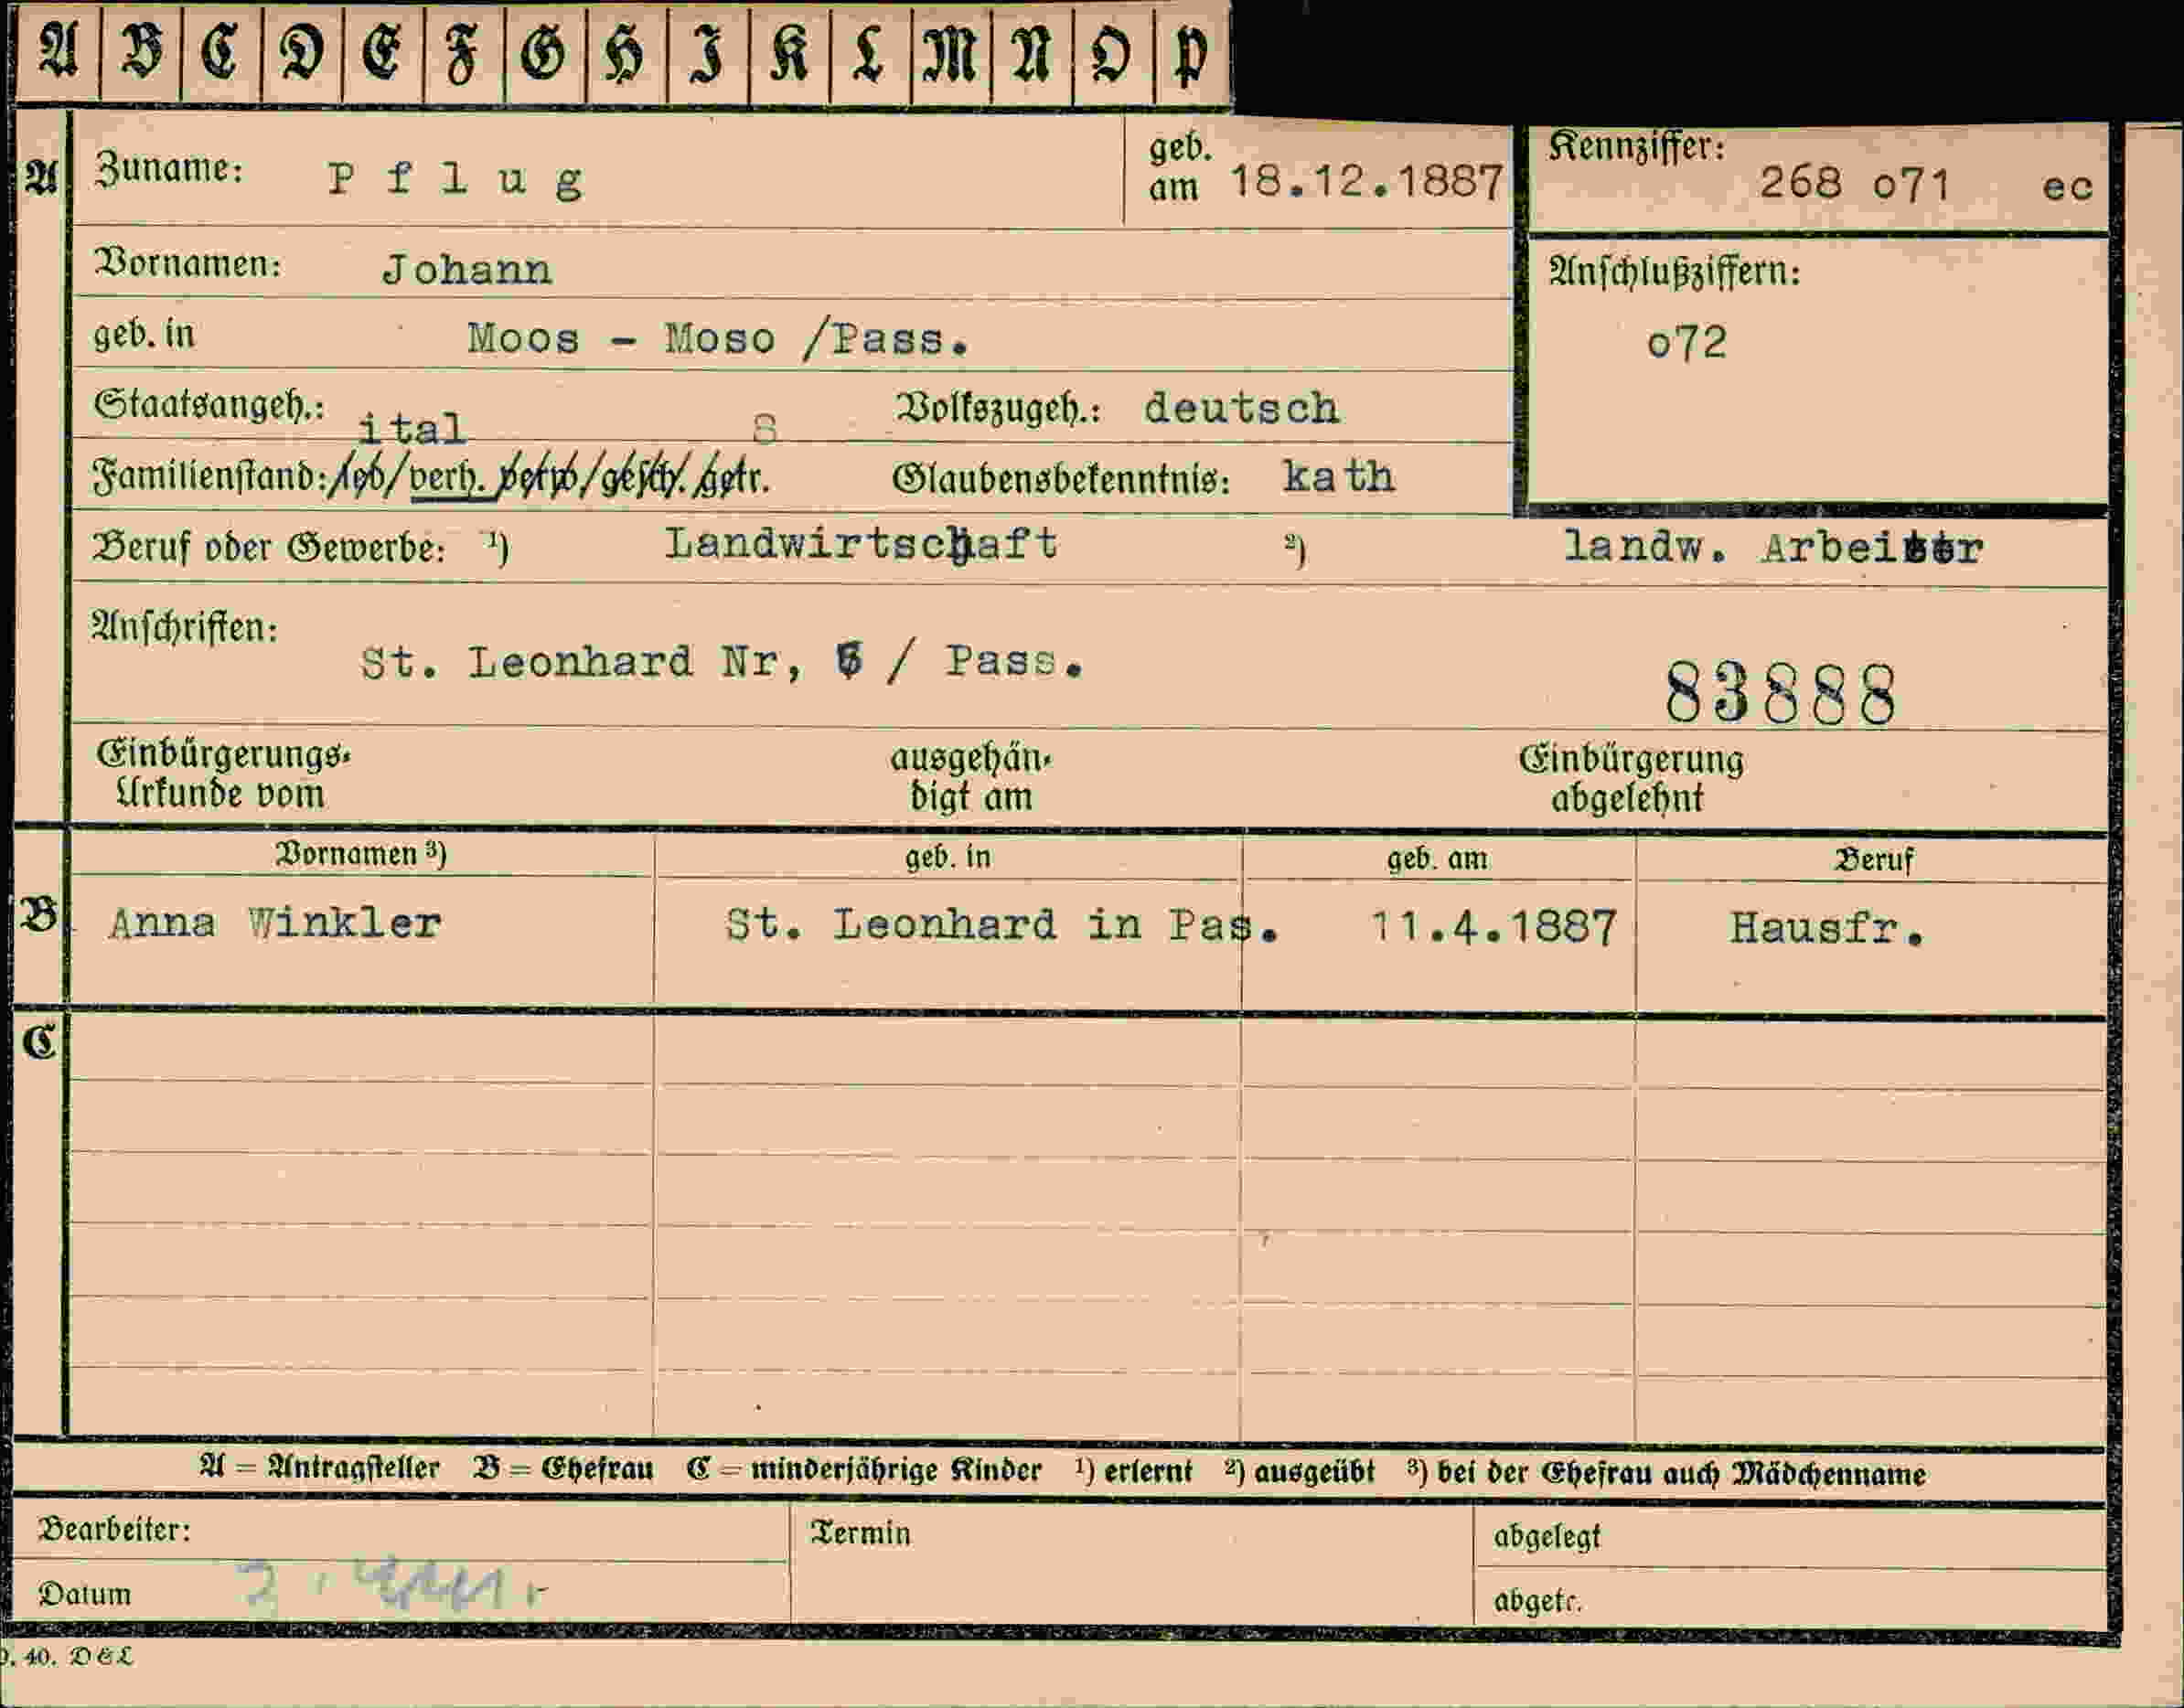 A B C D E F G H I K L M N O P
A Zuname: Pflug geb. am 18.12.1887 Kennziffer: 268 o71 ec
Vornamen: Johann
Anschlußziffern:
geb. in Moos - Moso /Pass.
o72
Staatsangeh.: ital S Volkszugeh.: deutsch
Familienstand: led/verh. verw/gesch. getr. Glaubensbekenntnis: kath
Beruf oder Gewerbe: ¹) Landwirtschaft ²) landw. Arbeiter
Anschriften:
St. Leonhard Nr, / Pass.
83888
Einbürgerungs- ausgehän- Einbürgerung
Urkunde vom digt am abgelehnt
Vornamen ³) geb. in geb. am Beruf
B Anna Winkler St. Leonhard in Pas. 11.4.1887 Hausfr.
C
A = Antragsteller B = Ehefrau C = minderjährige Kinder ¹) erlernt ²) ausgeübt ³) bei der Ehefrau auch Mädchenname
Bearbeiter: Termin abgelegt
Datum abgetr.
40. D&L